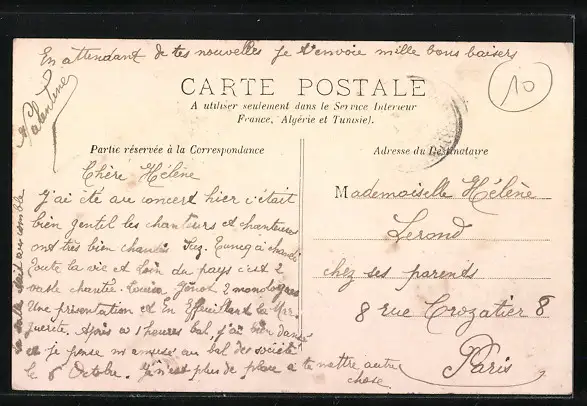 En attendant de tes nouvelles je t'envoie mille bons baisers
Valentine
10
CARTE POSTALE
A utiliser seulement dans le Service Intérieur
France, Algérie et Tunisie).
Partie réservée à la Correspondance
Chère Hélène
J'ai été au concert hier c'était
bien gentil les chanteurs et chanteuses
ont très bien chantés
Toute la vie et Loin du pays c'est 2
valse chantée. Louise 2 monologues
Une présentation et En Effeuillant la Mar
guerite. Après à 1 heures bal, j'ai bien dansé
et je pense m'amusé au bal des société
le 6 Octobre. J'n'est plus de place a te mettre autre
chose.
la salle était au comble
Adresse du Destinataire
Mademoiselle Hélène
Lerond
chez ses parents
8 rue Crozatier 8
Paris